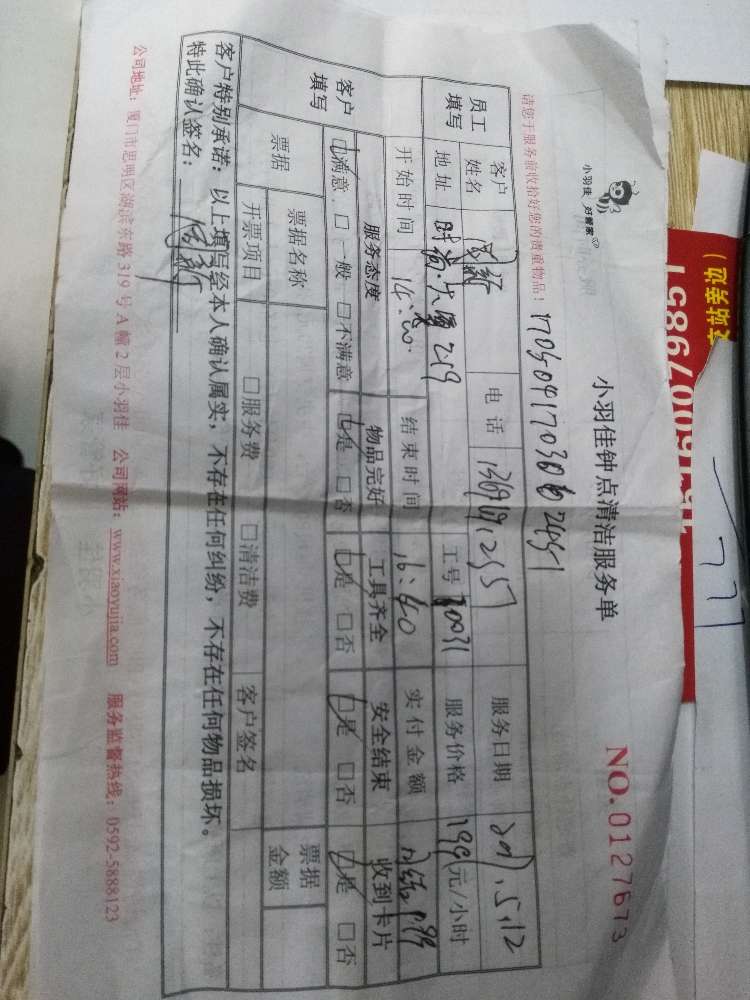 小羽佳 好管家
小羽佳钟点清洁服务单
NO.0127673
请您于服务前收拾好您的贵重物品！
员工填写
客户姓名
电话
服务日期
5.12
地址
259
工号
服务价格
元/小时
开始时间
14:00
结束时间
16:40
实付金额
客户填写
服务态度 物品完好 工具齐全 安全结束 收到卡片
□满意 □一般 □不满意 □是 □否 □是 □否 □是 □否 □是 □否
票据
票据名称
票据金额
开票项目
□服务费 □清洁费
客户签名
客户特别承诺：以上填写经本人确认属实，不存在任何纠纷，不存在任何物品损坏。
特此确认签名：
公司地址：厦门市思明区湖滨东路319号A幢2层小羽佳 公司网站：www.xiaoyujia.com 服务监督热线：0592-5888123